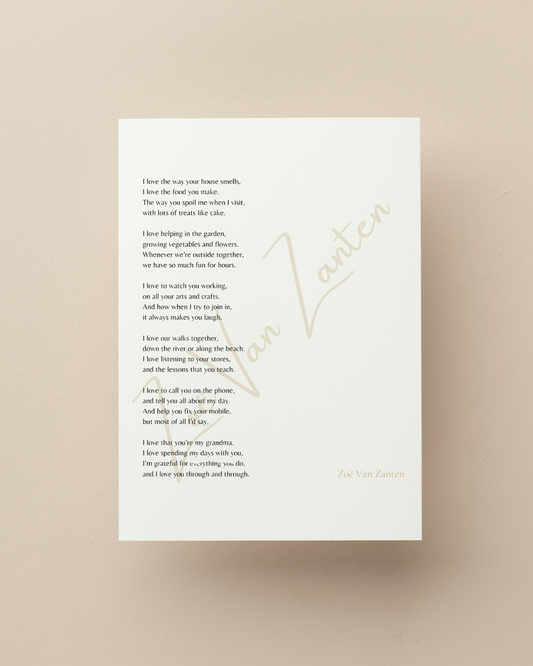 I love the way your house smells,
I love the food you make.
The way you spoil me when I visit,
with lots of treats like cake.
I love helping in the garden,
growing vegetables and flowers.
Whenever we're outside together,
we have so much fun for hours.
I love to watch you working,
on all your arts and crafts.
And how when I try to join in,
it always makes you laugh.
I love our walks together,
down the river or along the beach.
I love listening to your stores,
and the lessons that you teach.
I love to call you on the phone,
and tell you all about my day.
And help you fix your mobile,
but most of all I'd say,
I love that you're my grandma.
I love spending my days with you,
I'm grateful for everything you do,
and I love you through and through.
Zoë Van Zanten
Zoë Van Zanten